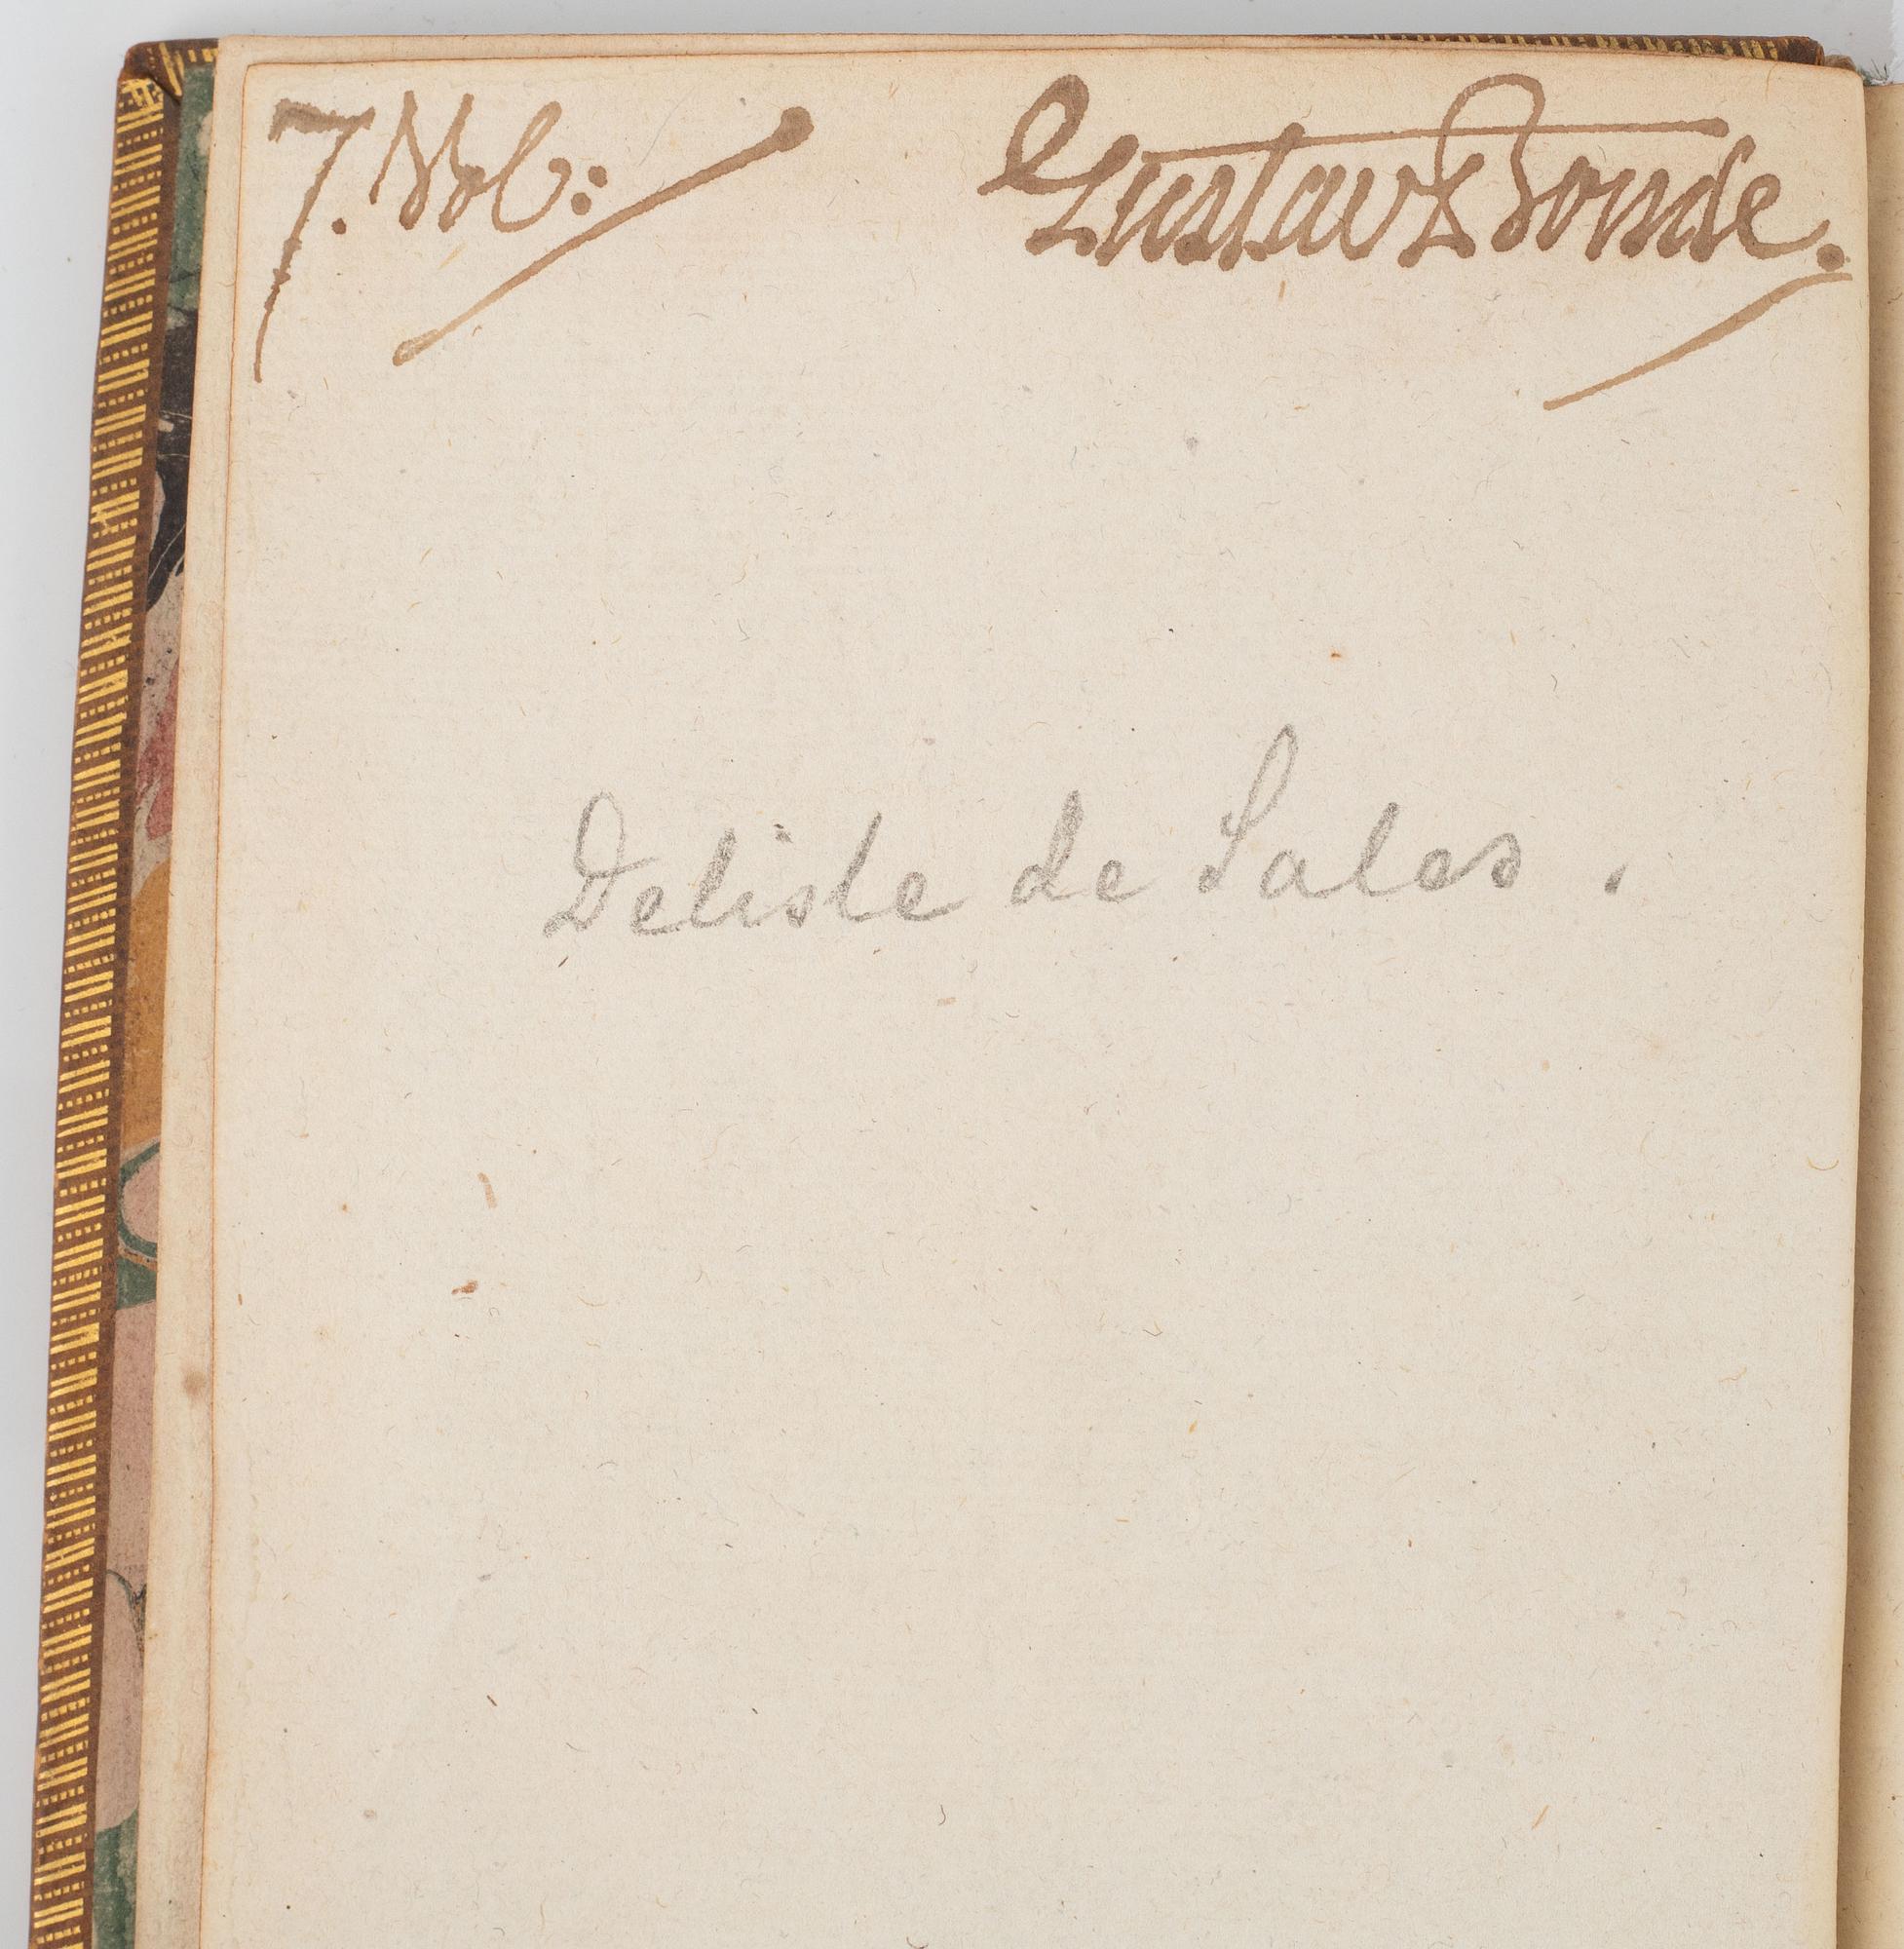 7. Vol:
Gustav Bonde.
Delisle de Sales.